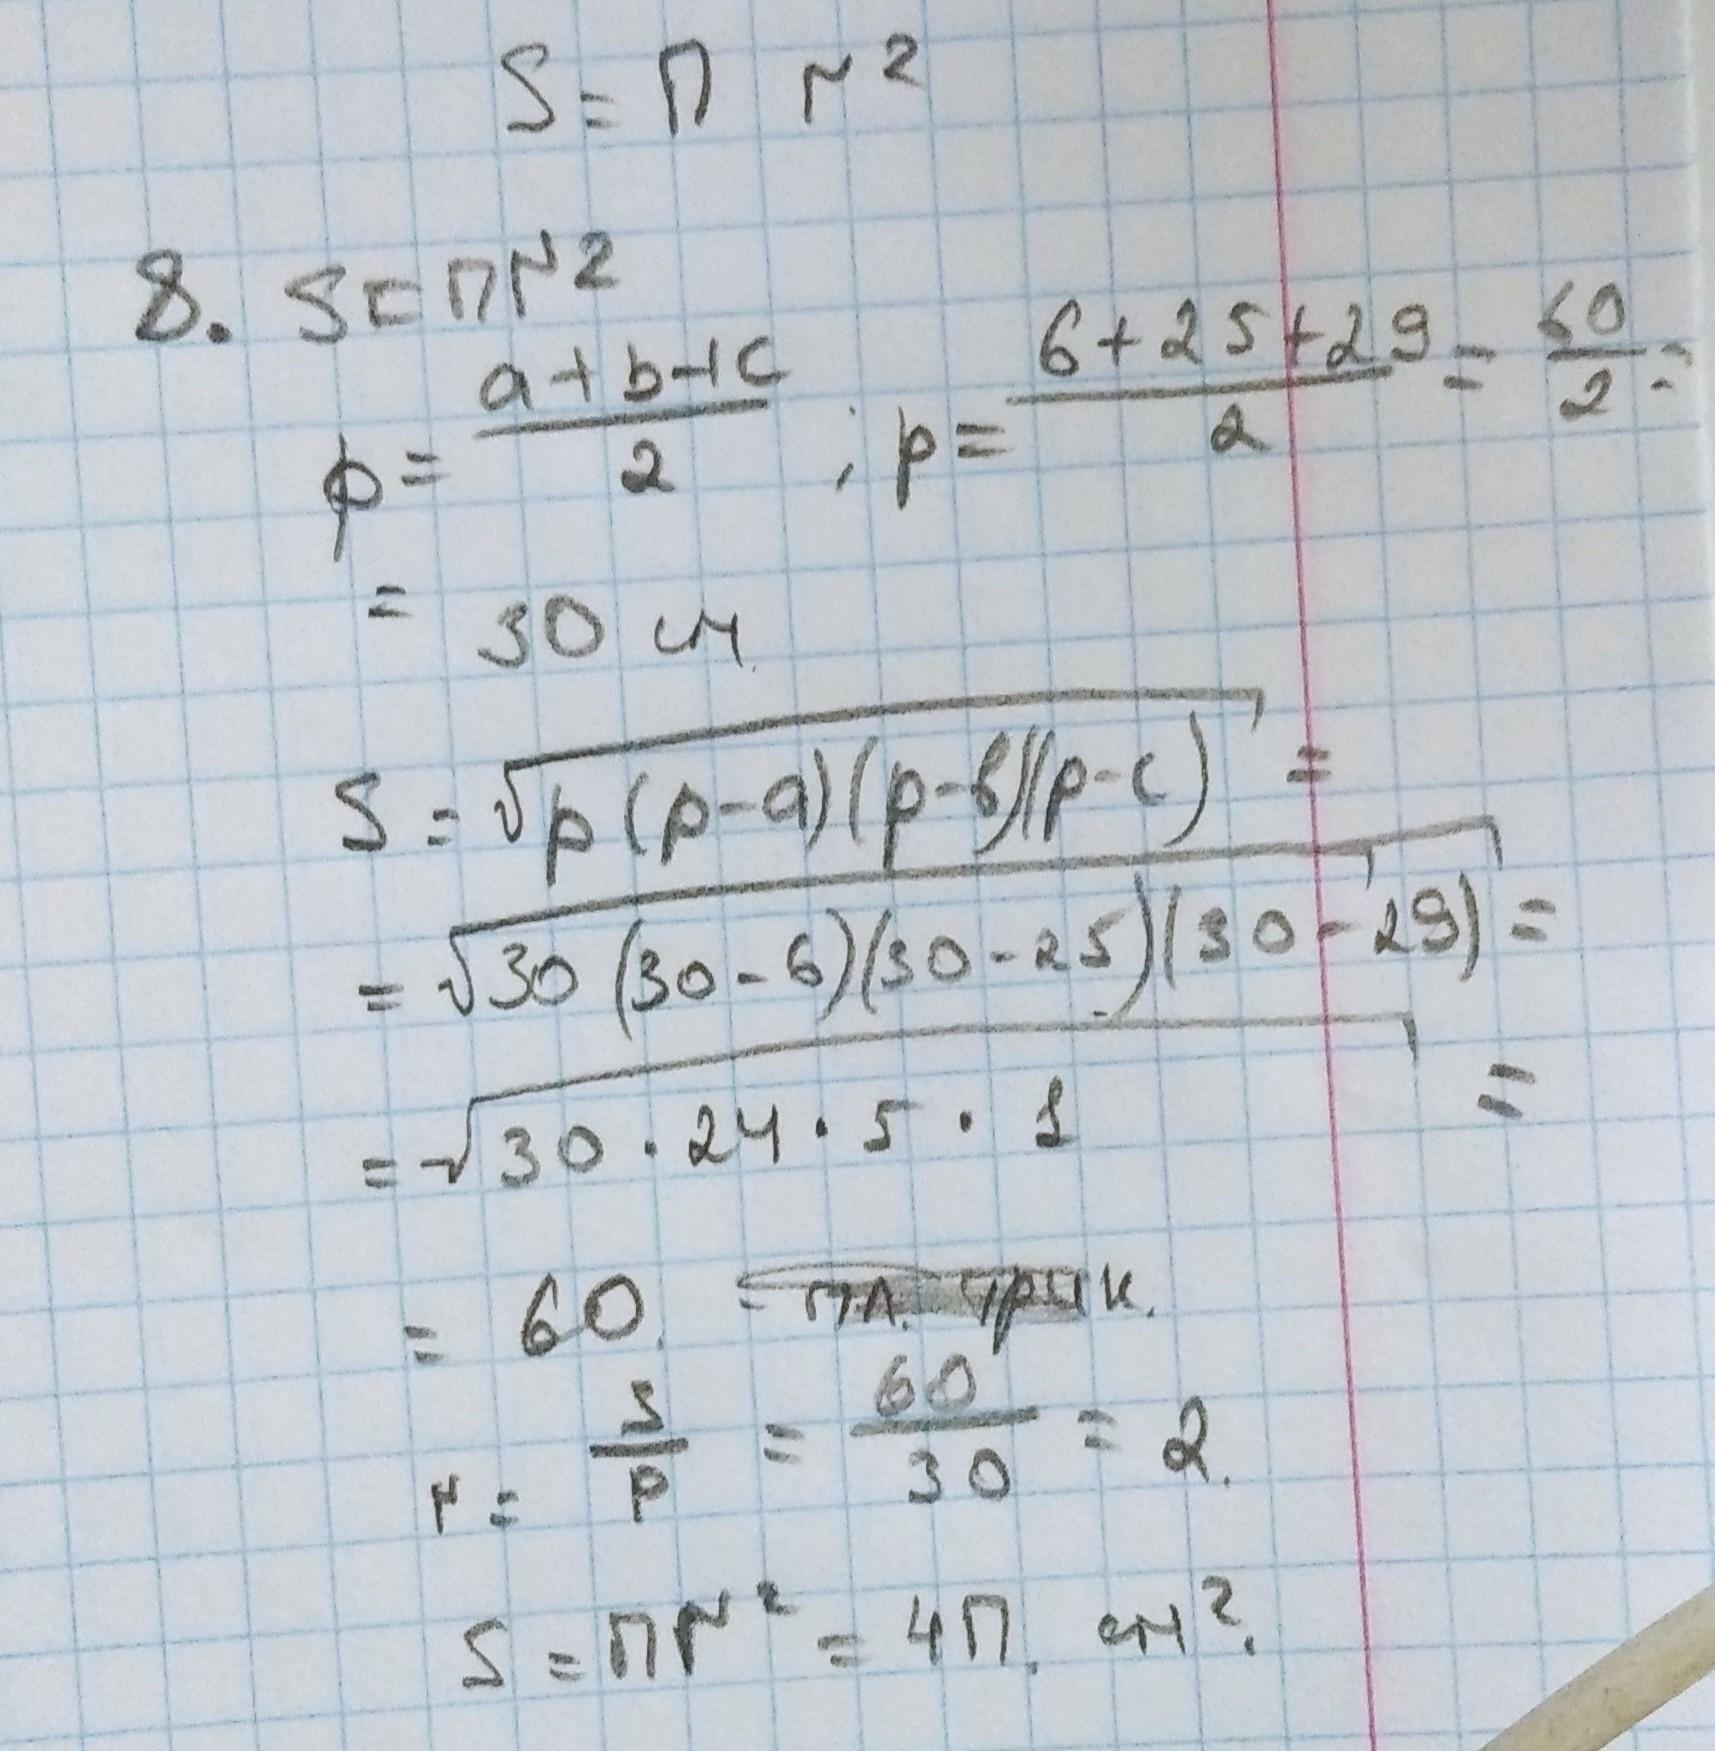 S = П r²
8. S = Пr²
p = (a+b+c)/2 ; p = (6+25+29)/2 = 60/2 =
= 30 см.
S = √p(p-a)(p-b)(p-c) =
= √30(30-6)(30-25)(30-29) =
= √30·24·5·1 =
= 60. - пл. трик.
r = S/p = 60/30 = 2.
S = Пr² = 4П. см².